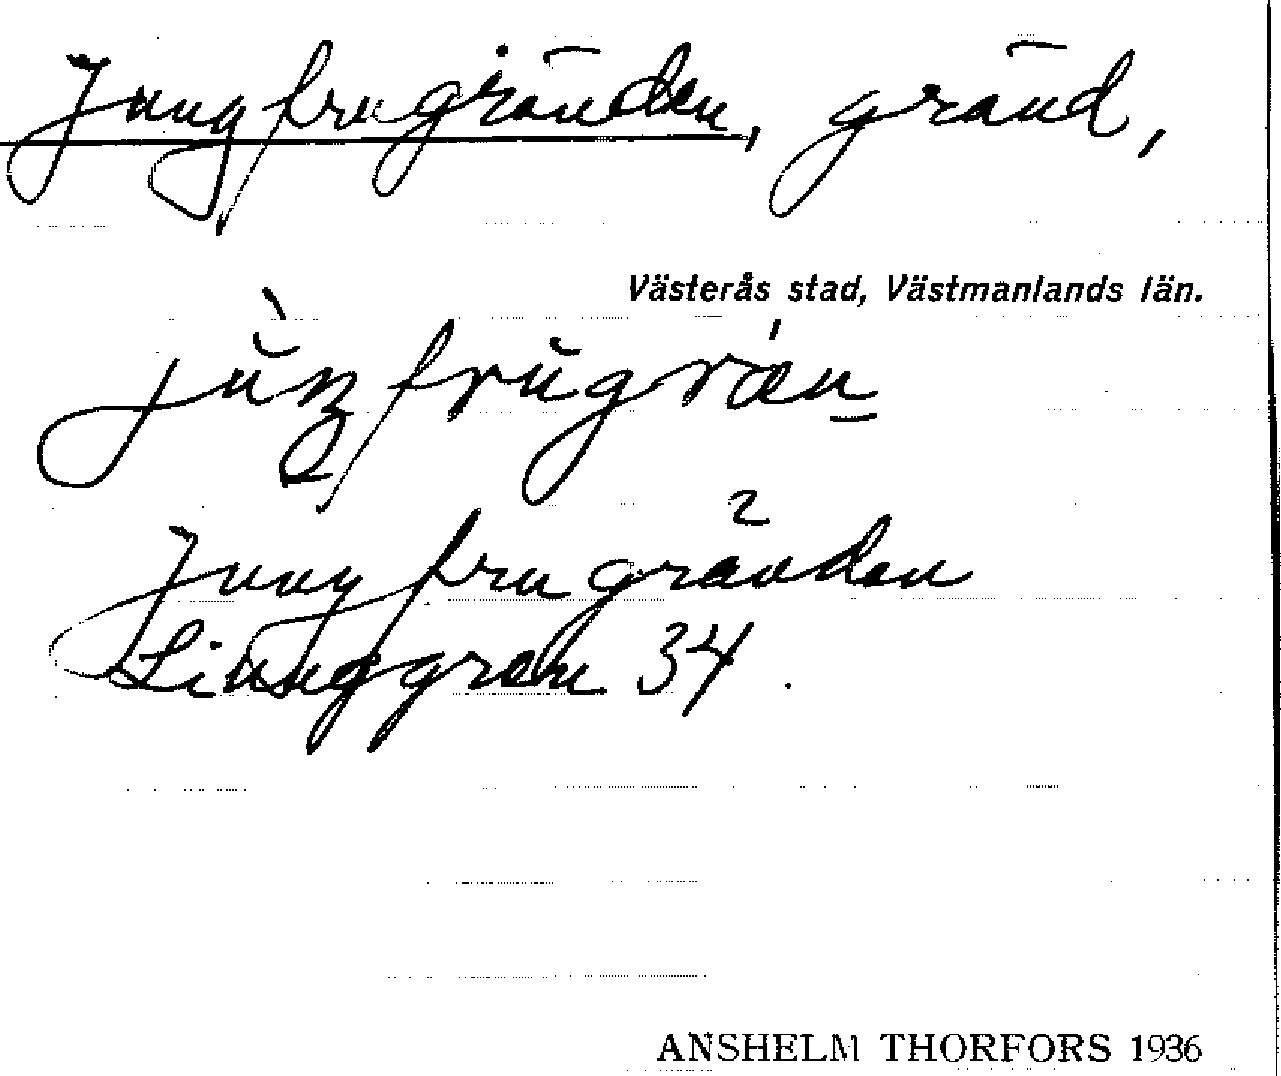 Jungfrugränden, gränd,
Västerås stad, Västmanlands län.
Jungfrugränden
Ljunggren 34
ANSHELM THORFORS 1936